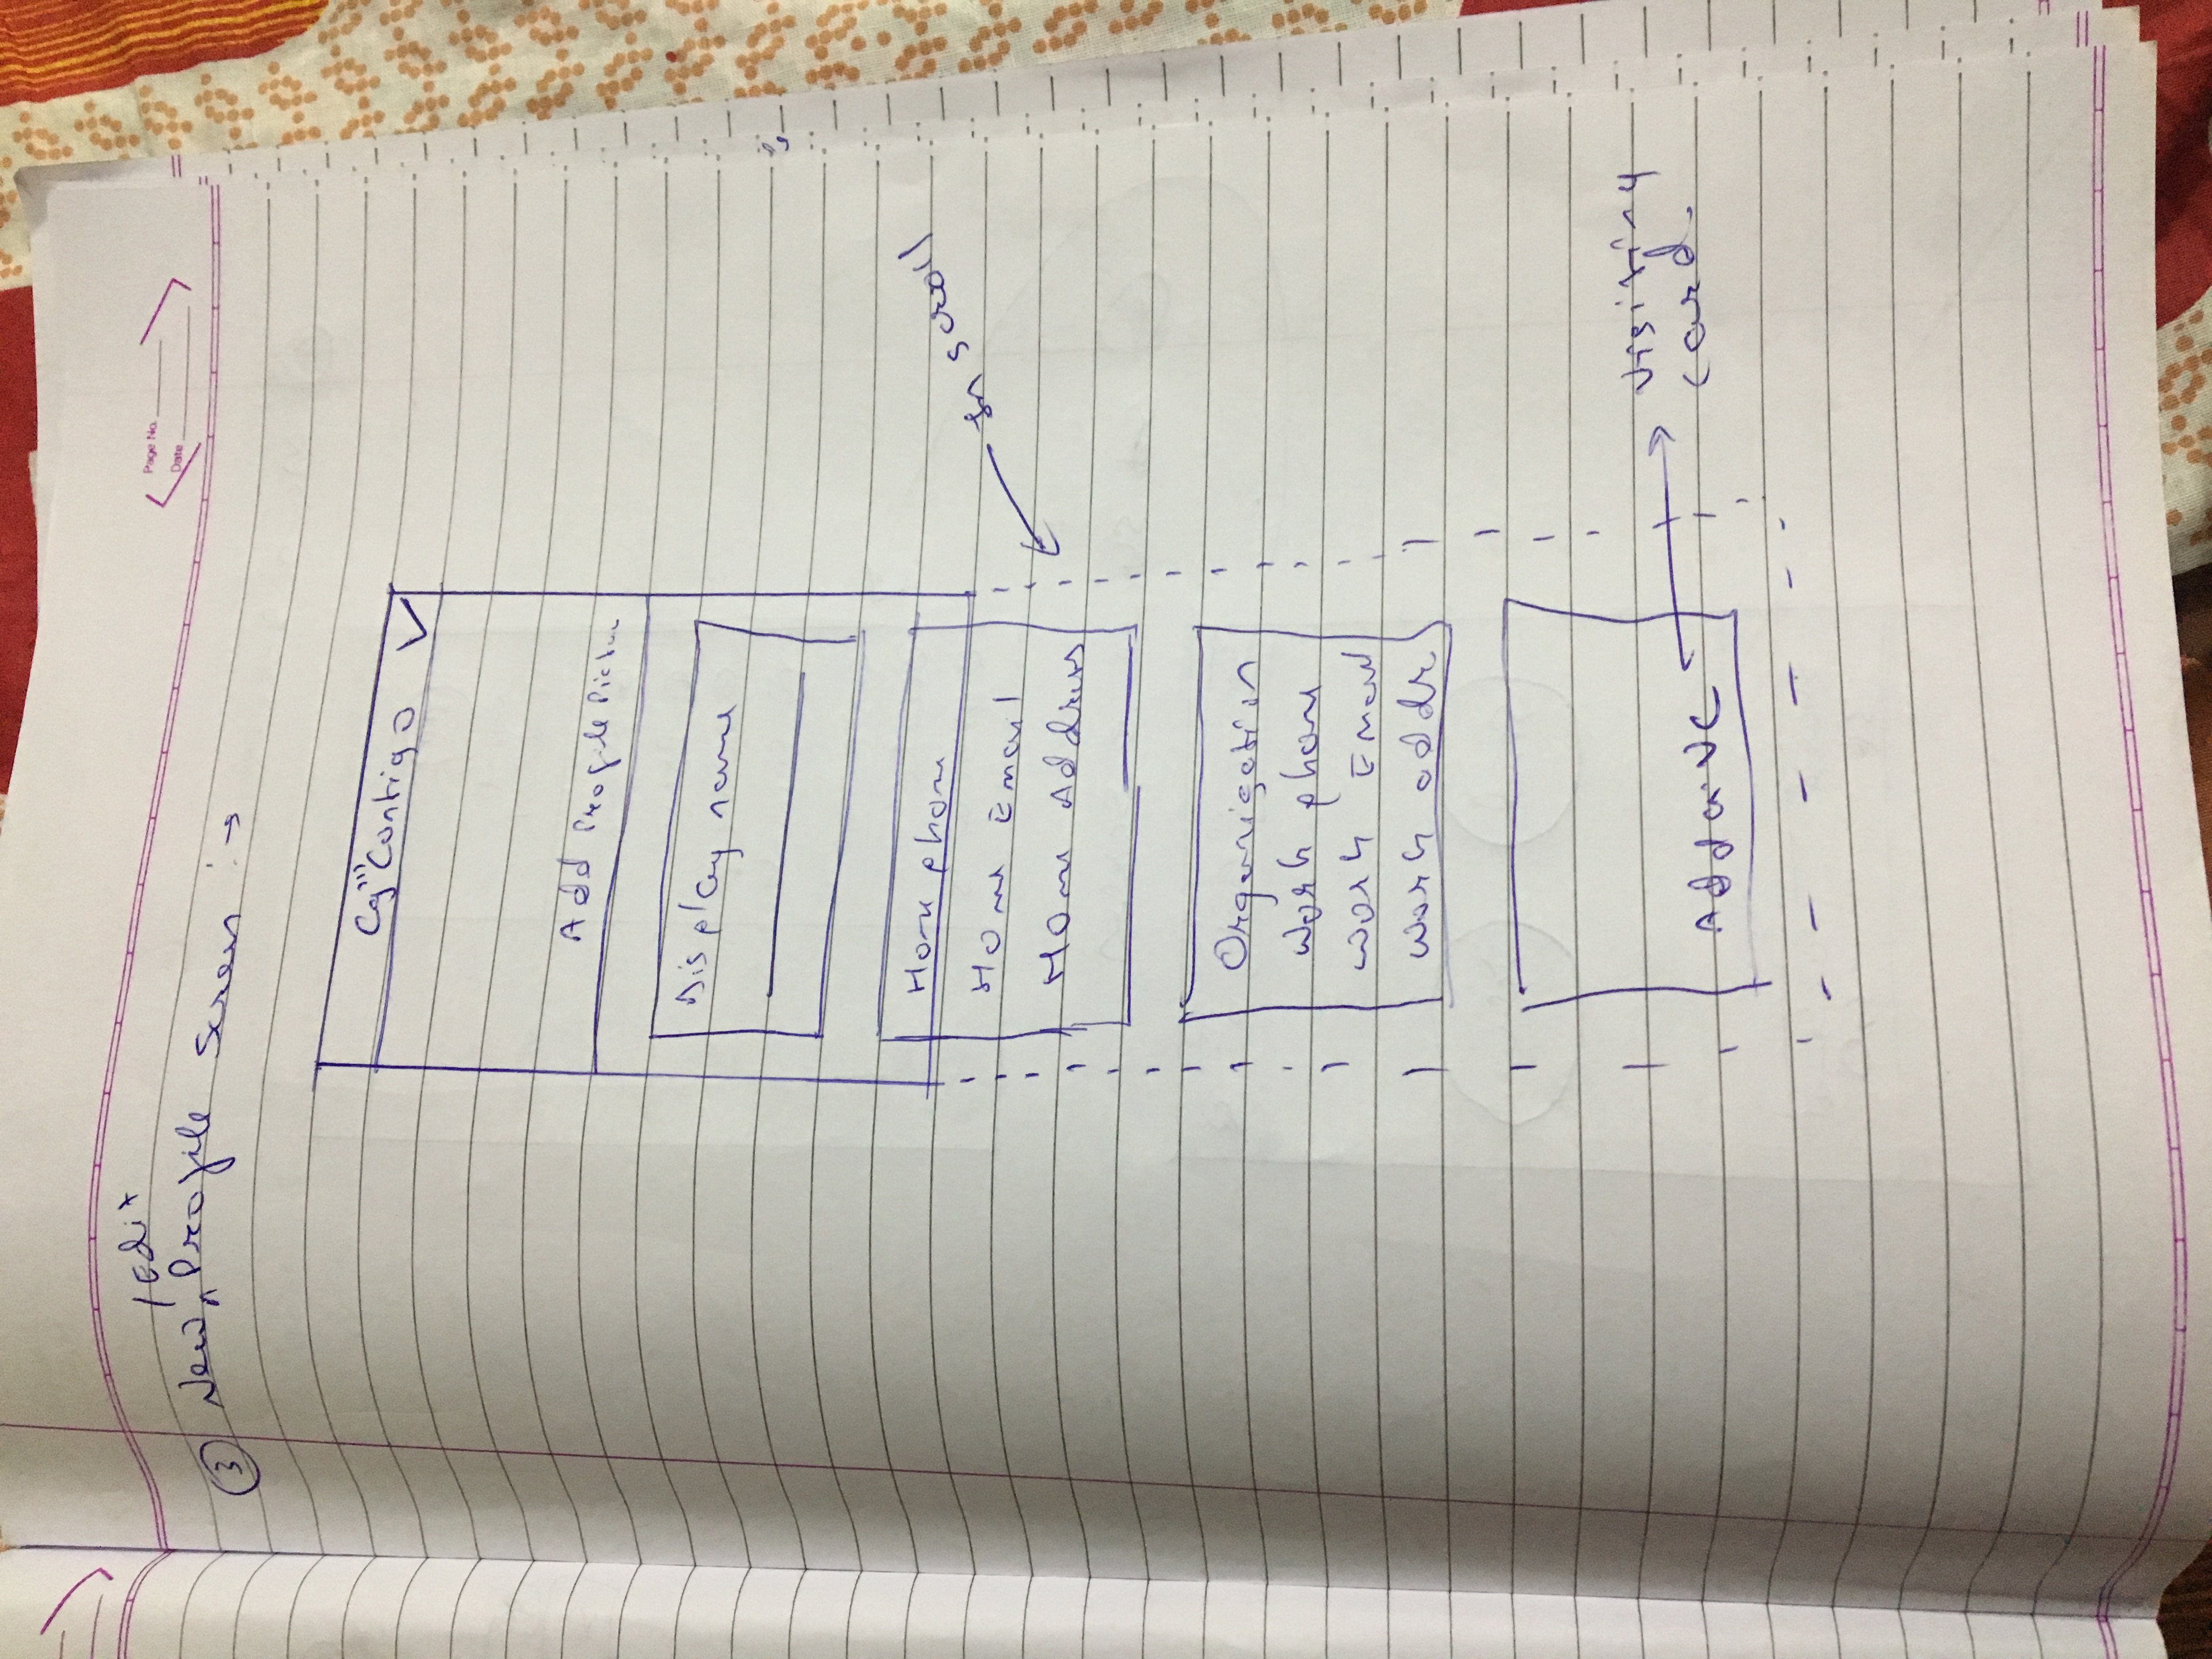 Page No.
Date
/Edit
③ New ^ Profile Screen :→
Contigo ✓
Add Profile Pictur
Display name
Home phone
In scroll
Home Email
Home Address
Organisation
Work phone
Work Email
Work addr
Add a VC → Visiting
card.